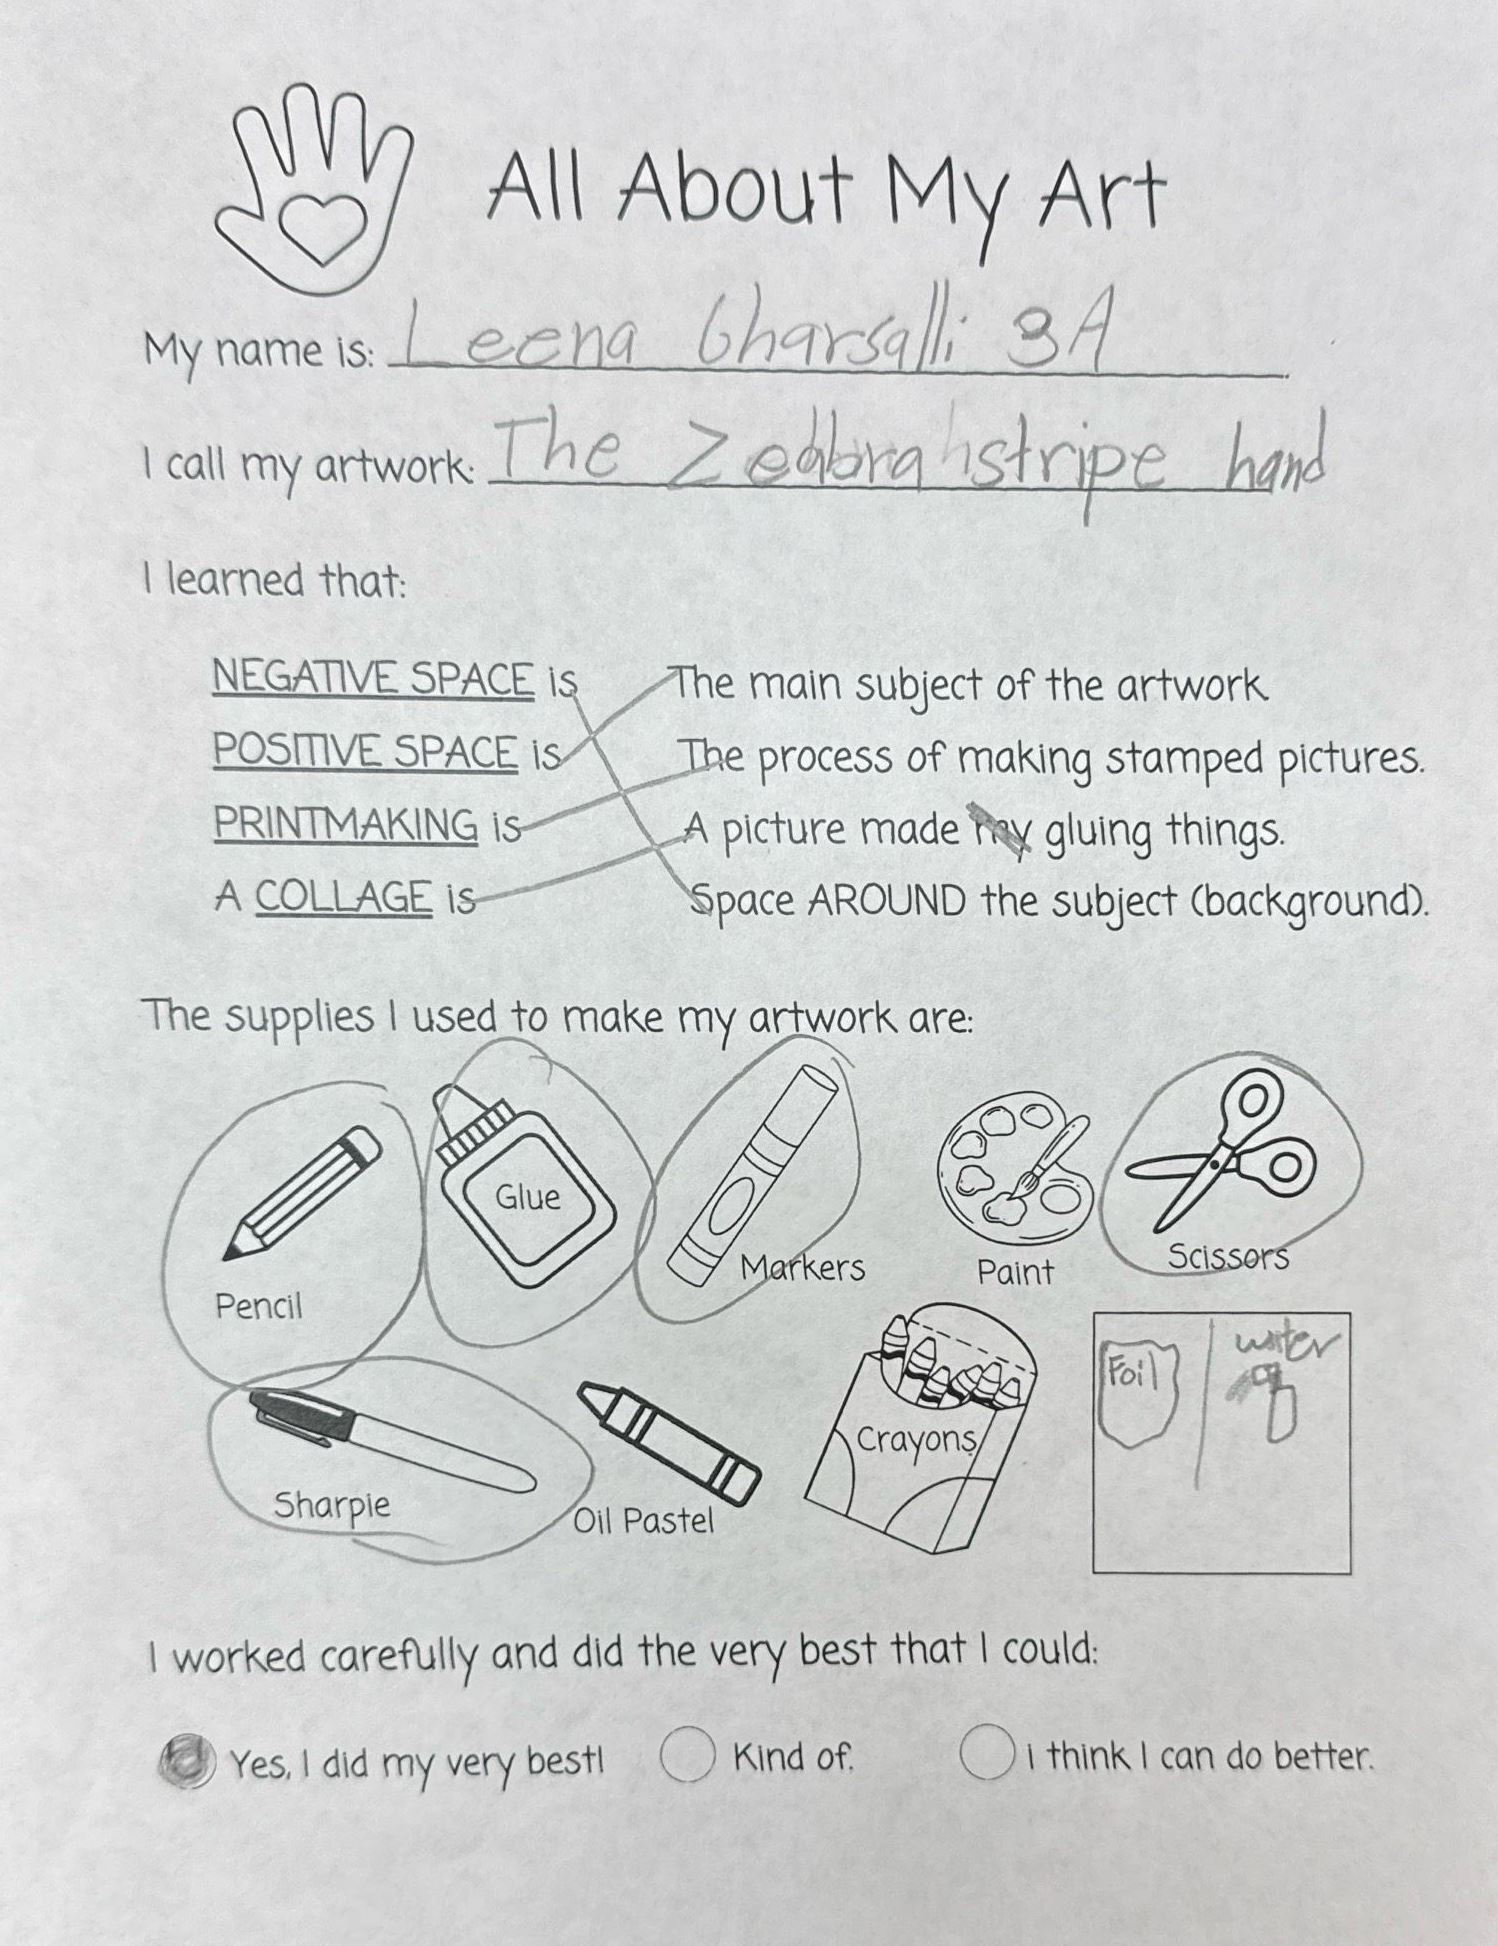 All About My Art
My name is: Leena Gharsalli 3A
I call my artwork: The stripe hand
I learned that:
NEGATIVE SPACE is The main subject of the artwork
POSITIVE SPACE is The process of making stamped pictures.
PRINTMAKING is A picture made gluing things.
A COLLAGE is Space AROUND the subject (background).
The supplies I used to make my artwork are:
Glue
Markers
Paint
Scissors
Pencil
Foil
water
Crayons
Sharpie
Oil Pastel
I worked carefully and did the very best that I could:
Yes, I did my very best! Kind of. i think I can do better.